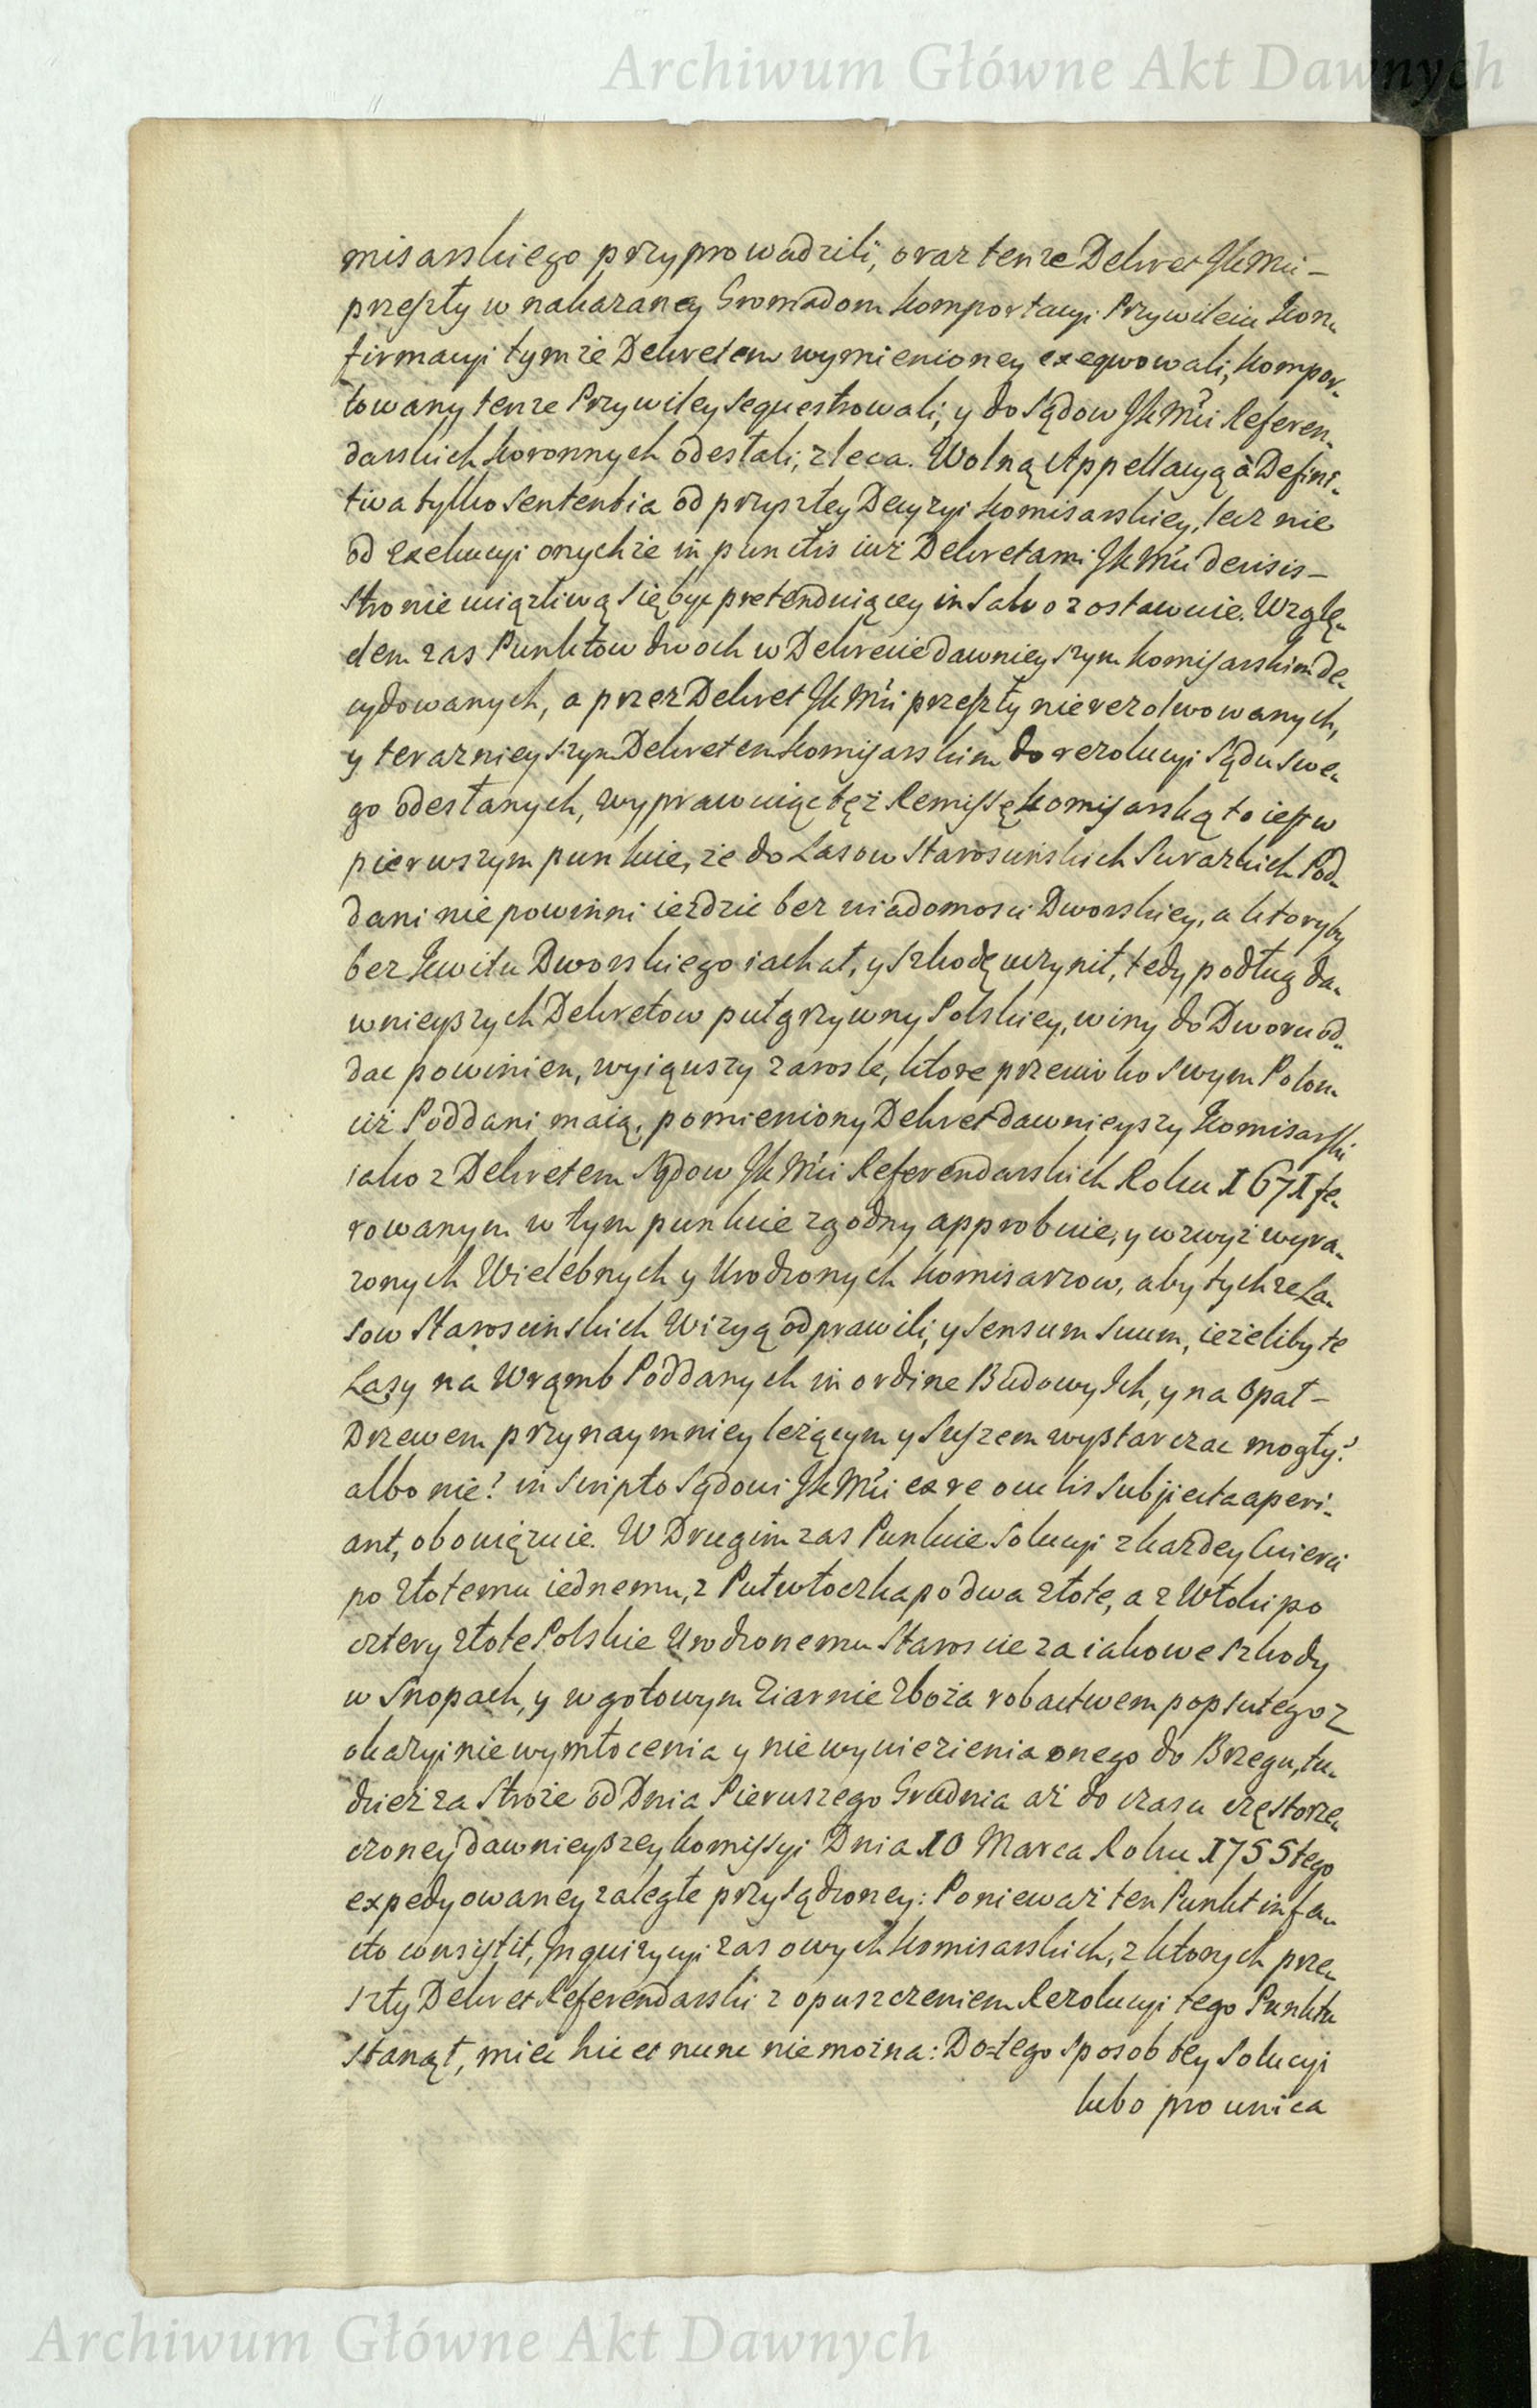 Archiwum Główne Akt Dawnych
misarskiego przyprowadzili, oraz tenze Dekret JkMci –
przeszły w nakazaney Gromadom komportacyi Przywileiu kon„
firmacyi tymże Dekretem wymienioney exeqwowali, kompor„
towany tenze Przywiley sequestrowali, y do Sądow JkMci Referen„
darskich koronnych odesłali, zleca. Wolną Appellacyą à Defini„
tiva tylko Sententia od przyszłey Decyzyi komisarskiey, lecz nie
od Exekucyi onychże in punctis iuż Dekretami JkMci decisis –
Stronie uciążliwą się byc pretenduiącey in Salvo zostawuie. Wzglę„
dem zas Punktow dwoch w Dekrecie dawnieyszym komisarskim de„
cydowanych, a przez Dekret JkMci przeszły nierezolwowanych,
y teraznieyszym Dekretem komisarskim do rezolucyi Sądu Swe„
go odesłanych, wyprawuiąc tęż Remissę komisarską to iest w
pierwszym punkcie, że do Lasow Staroscinskich Surazkich Pod„
dani nie powinni ieździc bez wiadomosci Dworskiey, a ktoryby
bez kwitu Dworskiego iachał, y szkodę uczynił, tedy podług da„
wnieyszych Dekretow puł grzywny Polskiey, winy do Dworu od„
dac powinien, wyiąwszy zarosle, ktore przeciwko swym Polom
ciż Poddani maią, pomieniony Dekret dawnieyszy komisarski
iako z Dekretem Sądow JkMci Referendarskich Roku 1671 fe„
rowanym w tym punkcie zgodny approbuie, y wzwyż wyra„
zonych Wielebnych y Urodzonych komisarzow, aby tychze La„
sow Staroscinskich Wizyą odprawili, y sensum suum, ieżeliby te
Lasy na Wrąmb Poddanych in ordine Budowy Ich, y na Opał –
Drzewem przynaymniey leżącym y Suszem wystarczac mogły?
albo nie? in Scripto Sądowi JkMci ex re oculis Subjecta aperi„
ant, obowięzuie. W Drugim zas Punkcie Solucyi z kazdey Cwierci
po złotemu iednemu, z Pułwłoczka po dwa złote, a z Włoki po
cztery złote Polskie Urodzonemu Staroscie za iakowe szkody
w Snopach, y w gotowym Ziarnie Zboża robactwem popsutego z
okazyi nie wymłocenia y nie wywiezienia onego do Brzegu, tu„
dzież za Stroże od Dnia Pierwszego Grudnia aż do czasu często rze„
czoney dawnieyszey komissyi Dnia 10 Marca Roku 1755tego
expedyowaney zaległe przysądzoney: Poniewaz ten Punkt in fa„
cto consistit, Inquizycyi zas owych komisarskich, z ktorych prze„
szły Dekret Referendarski z opuszczeniem Rezolucyi tego Punktu
stanął, miec hic et nunc nie można: Do tego sposob tey Solucyi
lubo pro unica
Archiwum Główne Akt Dawnych